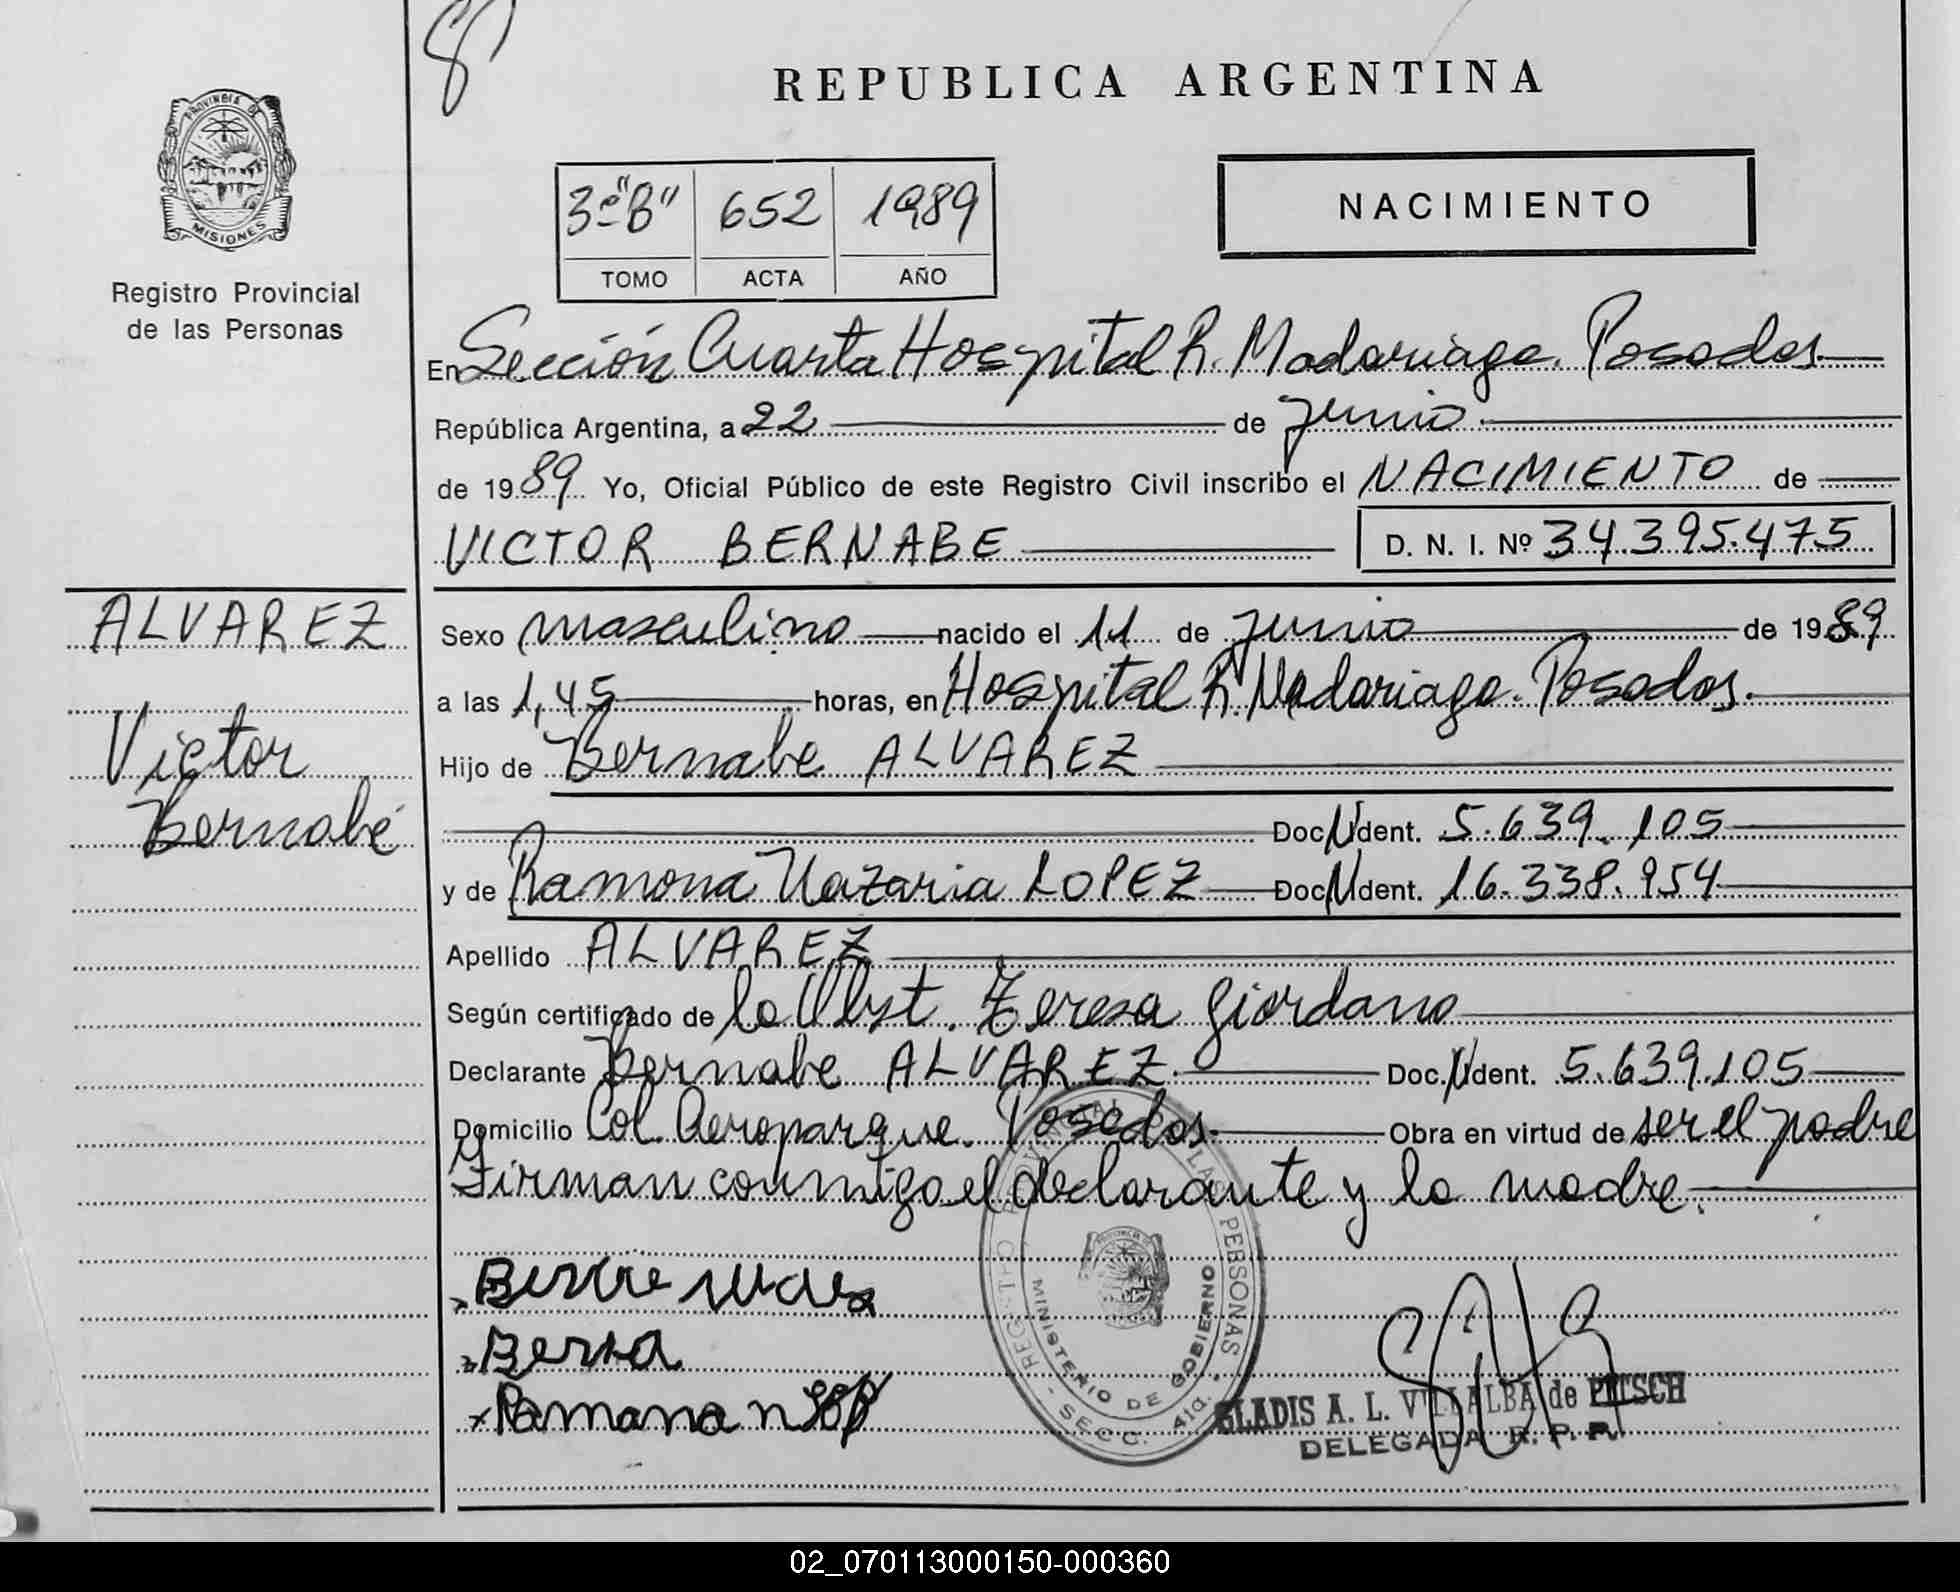 REPUBLICA ARGENTINA
PROVINCIA DE
MISIONES
Registro Provincial
de las Personas
3º "B" 652 1989
TOMO ACTA AÑO
NACIMIENTO
En Sección Cuarta Hospital R. Madariaga. Posadas
República Argentina, a 22 de junio
de 1989 Yo, Oficial Público de este Registro Civil inscribo el NACIMIENTO de
VICTOR BERNABE D. N. I. Nº 34.395.475
ALVAREZ
Victor
Bernabé
Sexo masculino nacido el 11 de junio de 1989
a las 1,45 horas, en Hospital R. Madariaga. Posadas.
Hijo de Bernabe ALVAREZ
Doc. N Ident. 5.639.105
y de Ramona Nazaria LOPEZ Doc. N Ident. 16.338.954
Apellido ALVAREZ
Según certificado de la Obst. Teresa Giordano
Declarante Bernabe ALVAREZ Doc. N Ident. 5.639.105
Domicilio Col. Aeroparque. Posadas. Obra en virtud de ser el padre
y
Firman conmigo el declarante y la madre.
Berna
Ramona n
REGISTRO PROVINCIAL DE LAS PERSONAS
MINISTERIO DE GOBIERNO
SECC. 4ta.
GLADIS A. L. VILLALBA de
DELEGADA R. P. P.
02_070113000150-000360